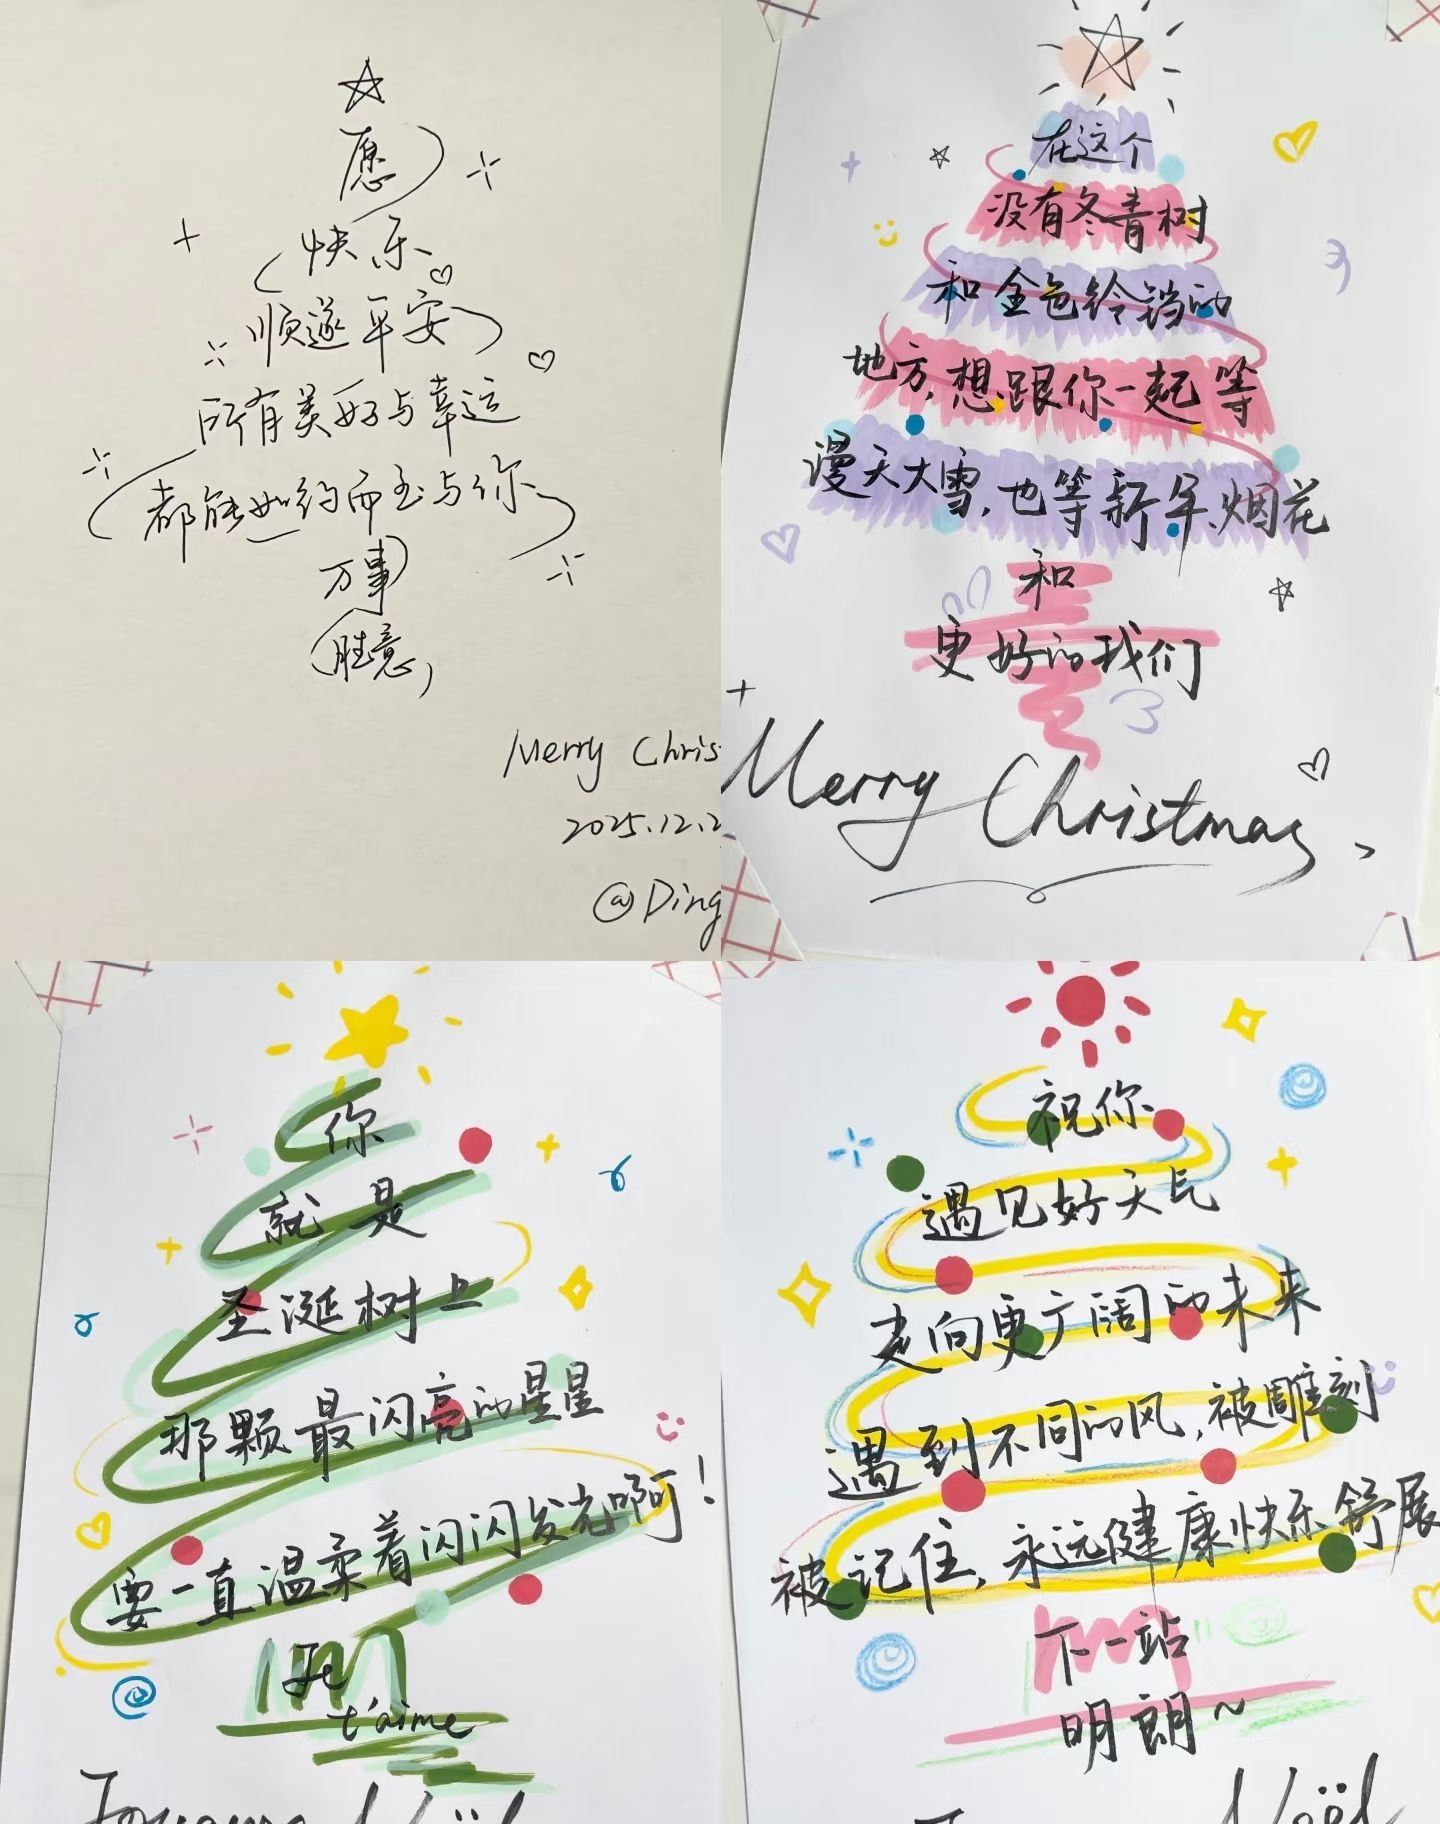 愿
快乐
顺遂平安
所有美好与幸运
都能如约而至与你
万事
胜意,
Merry Chris
2025.12.2
@Ding
在这个
没有冬青树
和金色铃铛的
地方,想跟你一起等
漫天大雪,也等新年烟花
和
更好的我们
Merry Christmas,
你
就是
圣诞树上
那颗最闪亮的星星
要一直温柔着闪闪发光啊!
Je
t'aime
Noël
祝你
遇见好天气
走向更广阔的未来
遇到不同的风,被雕刻
被记住,永远健康快乐舒展
下一站
明朗~
Noël